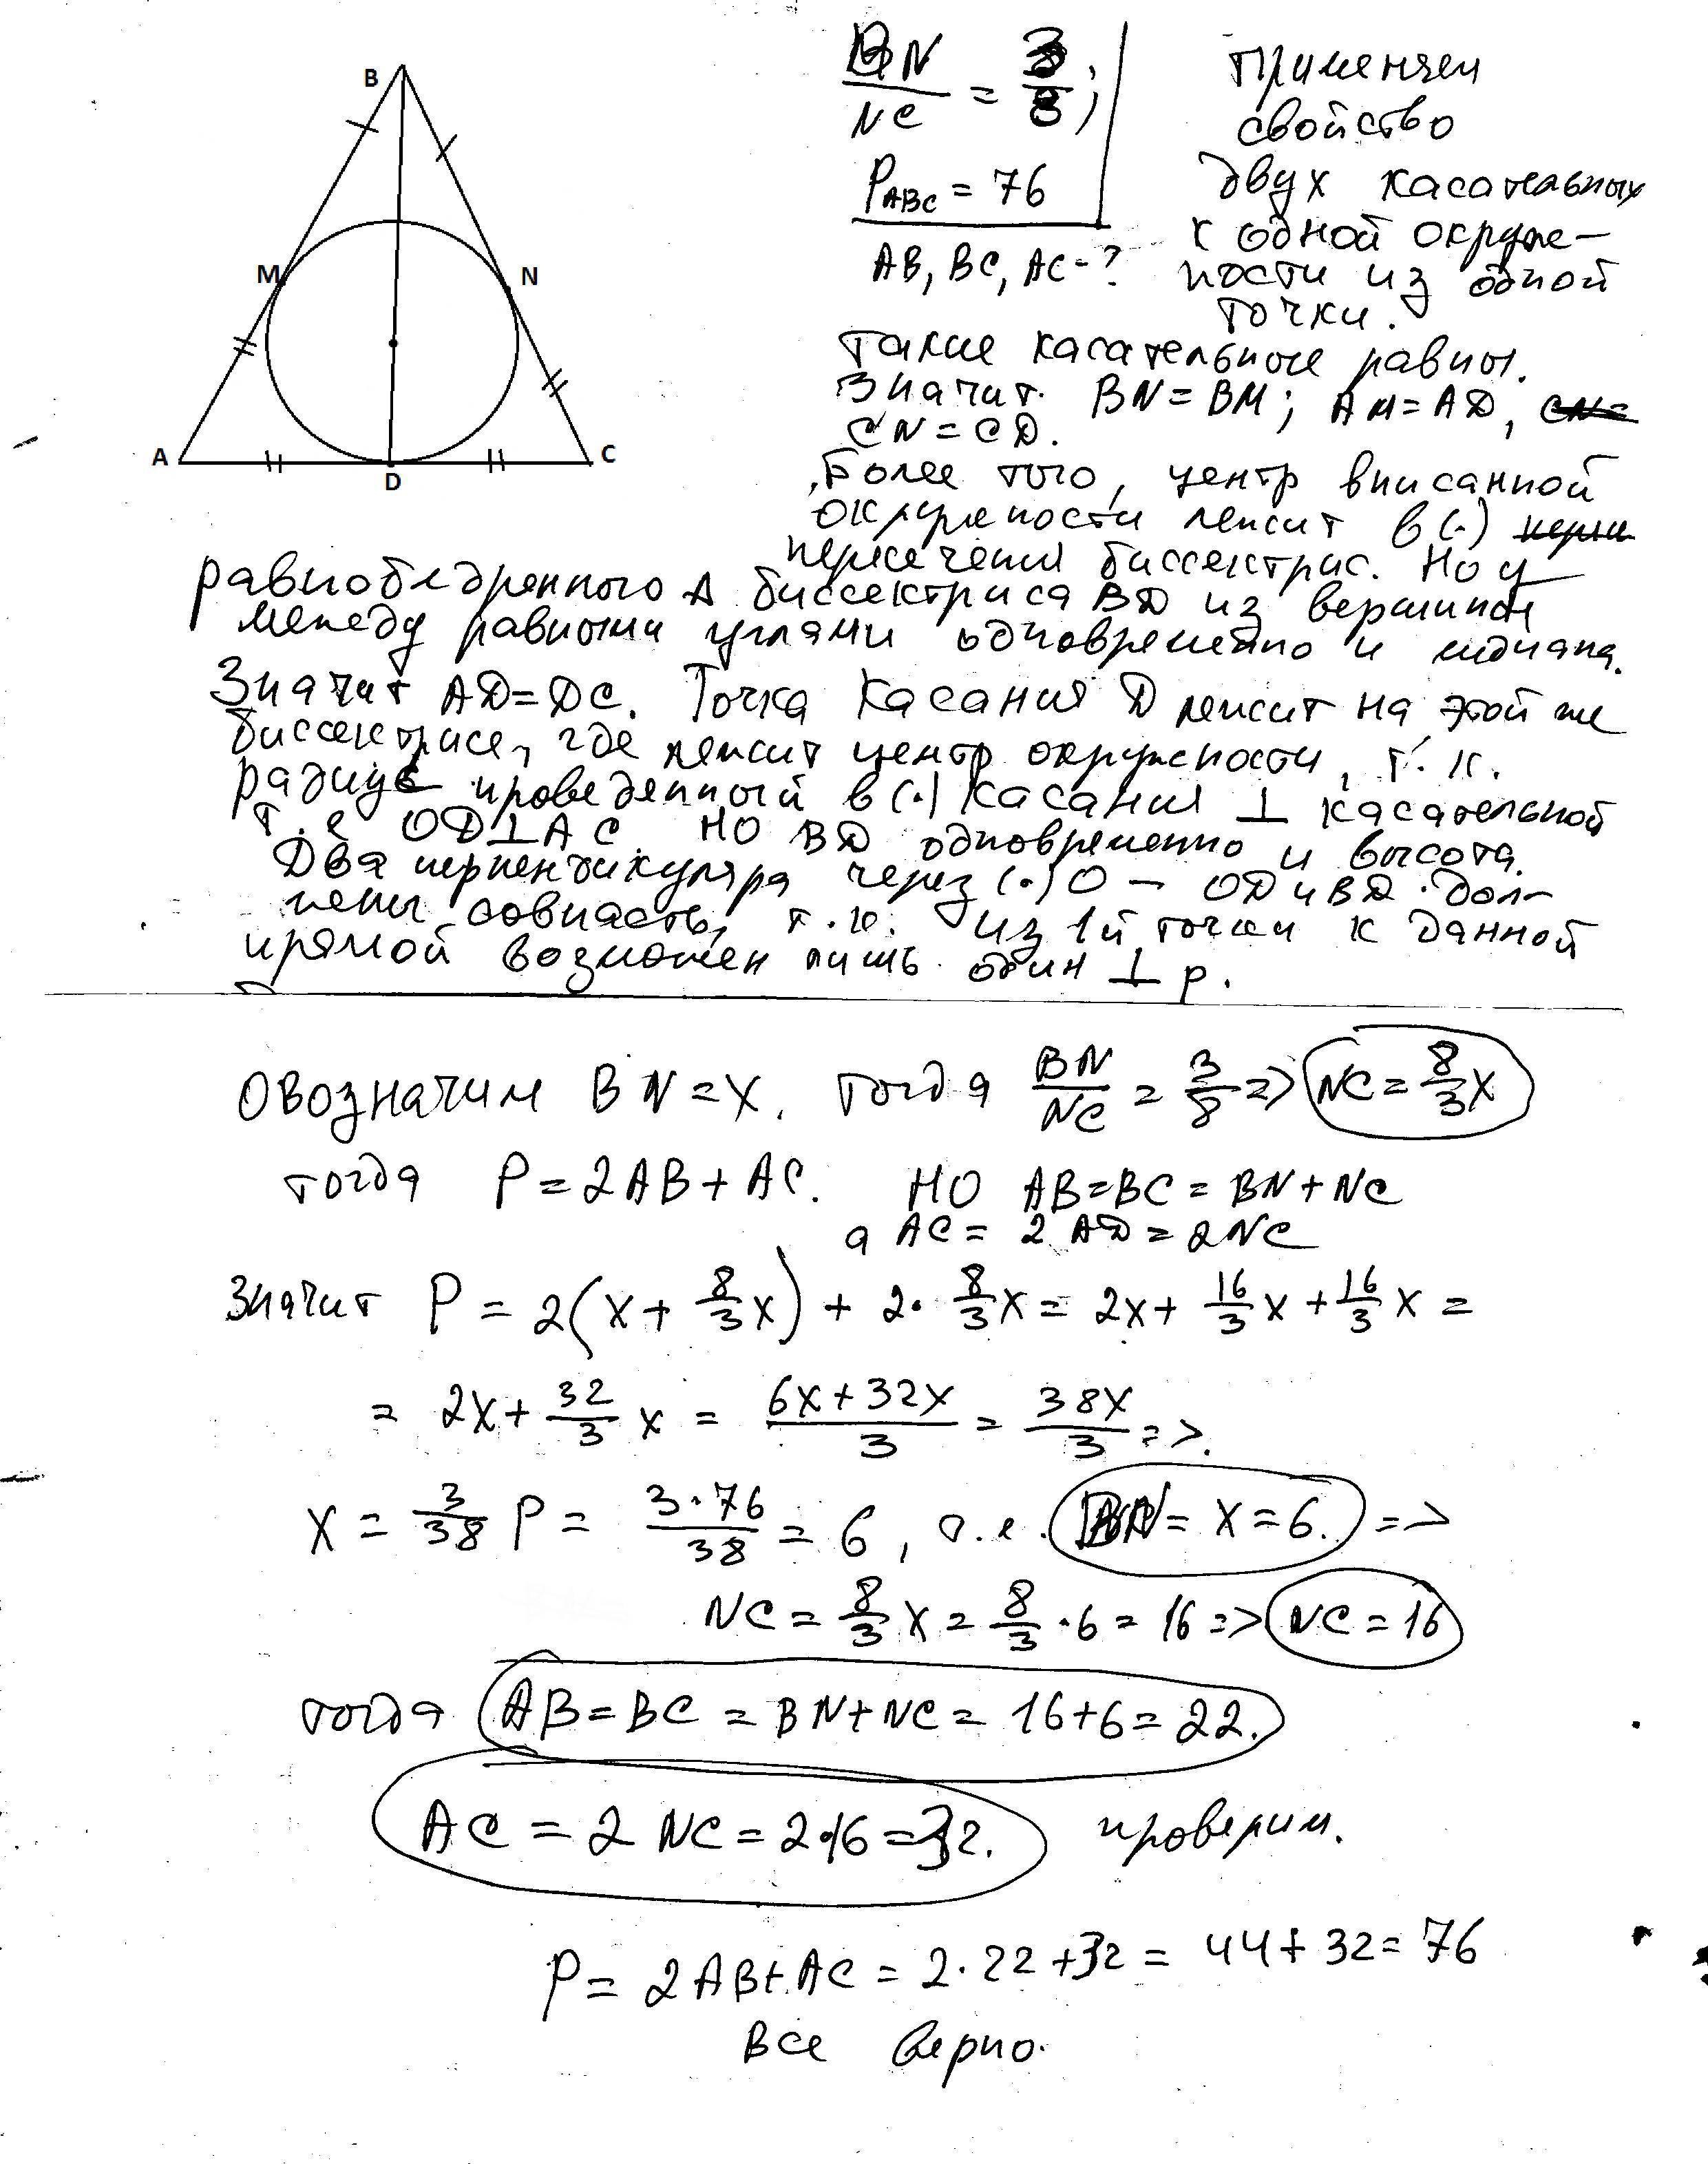 B
M
N
A
D
C
BN/NC = 3/8;
P_ABC = 76
AB, BC, AC - ?
применяем
свойство
двух касательных
к одной окруж-
ности из одной
точки.
такие касательные равны.
Значит BN = BM; AM = AD,
CN = CD.
Более того, центр вписанной
окружности лежит в (·)
пересечения биссектрис. Но у
равнобедренного Δ биссектриса BD из вершины
между равными углами одновременно и медиана.
Значит AD = DC. Точка касания D лежит на этой же
биссектрисе, где лежит центр окружности, т. к.
радиус проведенный в (·) касания ⊥ касательной
т. е OD ⊥ AC НО BD одновременно и высота.
Два перпендикуляра через (·) O - OD и BD дол-
жны совпасть, т. к. из 1й точки к данной
прямой возможен лишь один ⊥ р.
ОБОЗНАЧИМ BN = X. тогда BN/NC = 3/8 => NC = 8/3 X
тогда P = 2AB + AC. НО AB = BC = BN + NC
а AC = 2 AD = 2NC
Значит P = 2(X + 8/3 X) + 2 · 8/3 X = 2X + 16/3 X + 16/3 X =
= 2X + 32/3 X = (6X + 32X)/3 = 38X/3 =>.
X = 3/38 P = (3 · 76)/38 = 6, т. е. BN = X = 6. =>
NC = 8/3 X = 8/3 · 6 = 16 => NC = 16
тогда AB = BC = BN + NC = 16 + 6 = 22.
AC = 2 NC = 2·16 = 32. проверим.
P = 2AB + AC = 2 · 22 + 32 = 44 + 32 = 76
Все верно.